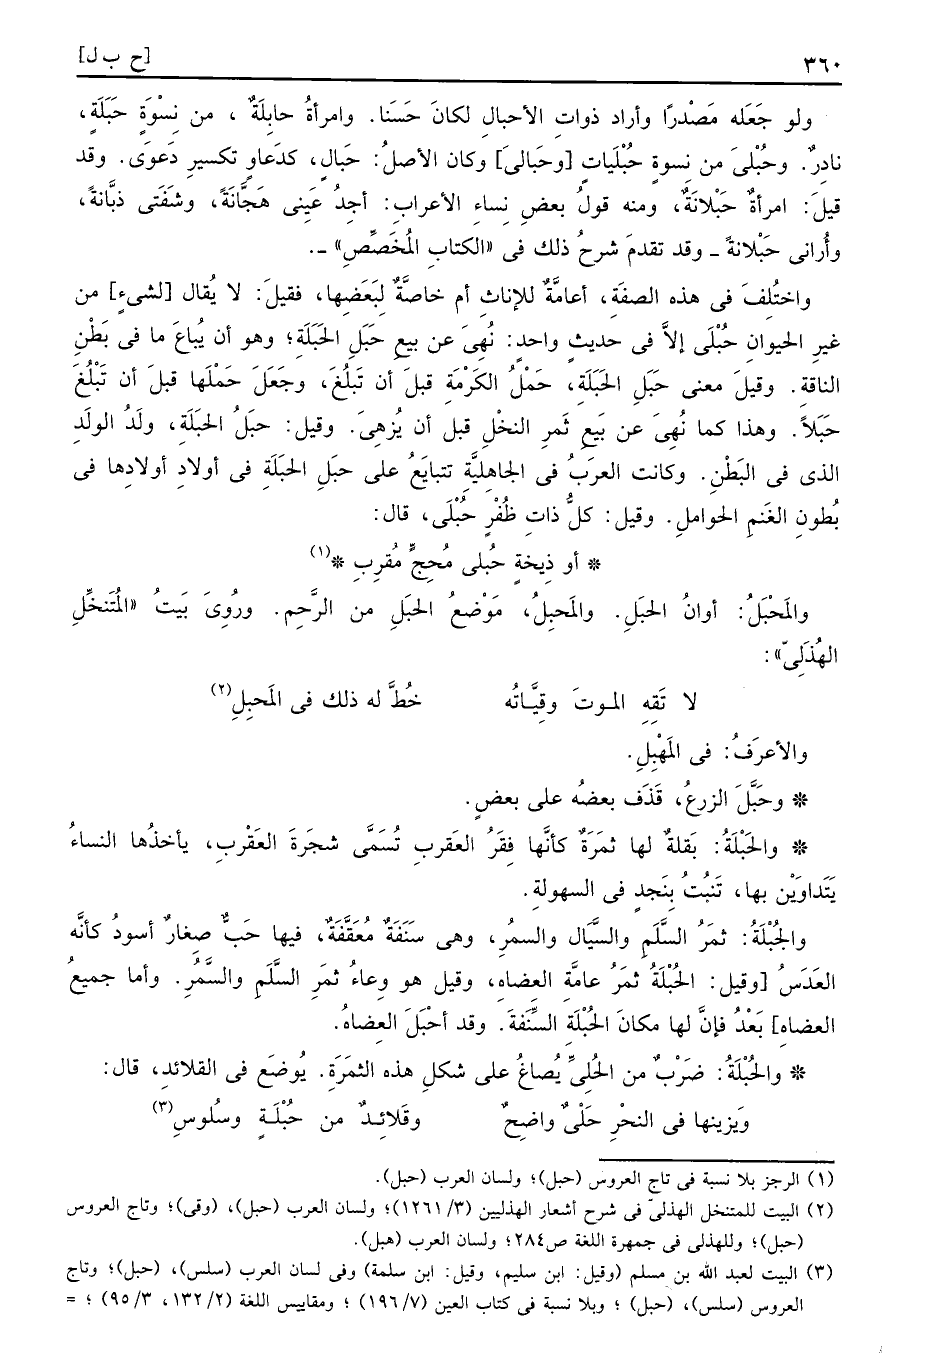 ٣٦٠ [ح ب ل]
ولو جَعَله مَصْدرًا وأراد ذوات الأحبال لكانَ حَسَنا. وامرأةُ حابلَةٌ ، من نسْوَةٍ حَبَلَة،
نادرٌ. وحُبْلىَ من نسوة حُبْلَيات [وحَبالىَ] وكان الأصلُ: حَبال، كدَعاوٍ تكسير دَعوَى. وقد
قيلَ: امرأةٌ حَبْلانَةٌ، ومنه قولُ بعض نساء الأعراب: أجدُ عَينى هَجَّانَةً، وشَفَتى ذبَّانةً،
وأُرانى حَبْلانةً ـ وقد تقدمَ شرحُ ذلك فى «الكتاب المُخَصِّص» ـ.
واختُلفَ فى هذه الصفَة، أعامَّةٌ للإناث أم خاصَّةٌ لبَعَضِها، فقيلَ: لا يُقال [لشىءٍ] من
غيرِ الحيوان حُبْلَى إلاَّ فى حديثٍ واحدٍ: نُهِىَ عن بيعِ حَبَلِ الحَبَلَة؛ وهو أن يُباعَ ما فى بَطْنِ
الناقة. وقيلَ معنى حَبَلِ الحَبَلَة، حَمْلُ الكَرْمَة قبلَ أن تَبلُغَ، وجَعَلَ حَمْلَها قبلَ أن تَبْلُغَ
حَبَلاً. وهذا كما نُهِىَ عن بَيعِ ثَمرِ النخْلِ قبل أن يُزهِىَ. وقيل: حبَلُ الحبَلَة، ولَدُ الولَدِ
الذى فى البَطْن. وكانت العرَبُ فى الجاهليَّة تتبايَعُ على حبَلِ الحبَلَةِ فى أولادِ أولادِها فى
بُطونِ الغَنمِ الحواملِ. وقيل: كلُّ ذاتِ ظُفْرٍ حُبْلَى، قال:
* أو ذِيخةٍ حُبلى مُحِجٍّ مُقربِ *(١)
والمَحْبَلُ: أوانُ الحبَلِ. والمَحبلُ، مَوْضعُ الحبَلِ من الرَّحم. ورُوِىَ بَيت «المُتَنخِّل
الهُذَلىّ»:
لا تَقِهِ الموتَ وقيَّاتُه خُطَّ له ذلك فى المَحبِلِ(٢)
والأعرَفُ: فى المَهْبِلِ.
* وحَبَّلَ الزرعُ، قَذَف بعضهُ على بعضٍ.
* والحَبْلَةُ: بَقلةٌ لها ثمرَةٌ كأنَّها فِقَرُ العَقربِ تُسَمَّى شجرَةَ العَقْرب، يأخذُها النساءُ
يَتَداوَيْن بها، تَنبُتُ بنَجدٍ فى السهولة.
والحُبْلَةُ: ثمرُ السَّلَمِ والسَّيَال والسمُر، وهى سنَفَةٌ مُعَقَّفَةٌ، فيها حَبٌّ صغارٌ أسودُ كأنَّه
العَدَسُ [وقيل: الحُبْلَةُ ثمرُ عامَّة العضاه، وقيل هو وعاءُ ثمَرِ السلَمِ والسَّمُر. وأما جميعُ
العضاه] بَعْدُ فإنَّ لها مكانَ الحُبْلَة السِّنَفةَ. وقد أحبَلَ العضاهُ.
* والحُبْلَةُ: ضرَبٌ من الحُلىِّ يُصاغُ على شكلِ هذه الثمَرَة. يُوضَع فى القلائد، قال:
وَيزينها فى النحْر حَلْىٌ واضحٌ وقَلائدٌ من حُبْلَـةٍ وسُلوس(٣)
(١) الرجز بلا نسبة فى تاج العروس (حبل)؛ ولسان العرب (حبل).
(٢) البيت للمتنخل الهذلىّ فى شرح أشعار الهذليين (٣/ ١٢٦١)؛ ولسان العرب (حبل)، (وقى)؛ وتاج العروس
(حبل)؛ وللهذلى فى جمهرة اللغة ص٢٨٤؛ ولسان العرب (هبل).
(٣) البيت لعبد الله بن مسلم (وقيل: ابن سليم، وقيل: ابن سلمة) وفى لسان العرب (سلس)، (حبل)؛ وتاج
العروس (سلس)، (حبل) ؛ وبلا نسبة فى كتاب العين (٧/ ١٩٦) ؛ ومقاييس اللغة (٢/ ١٣٢، ٣/ ٩٥) ؛ =